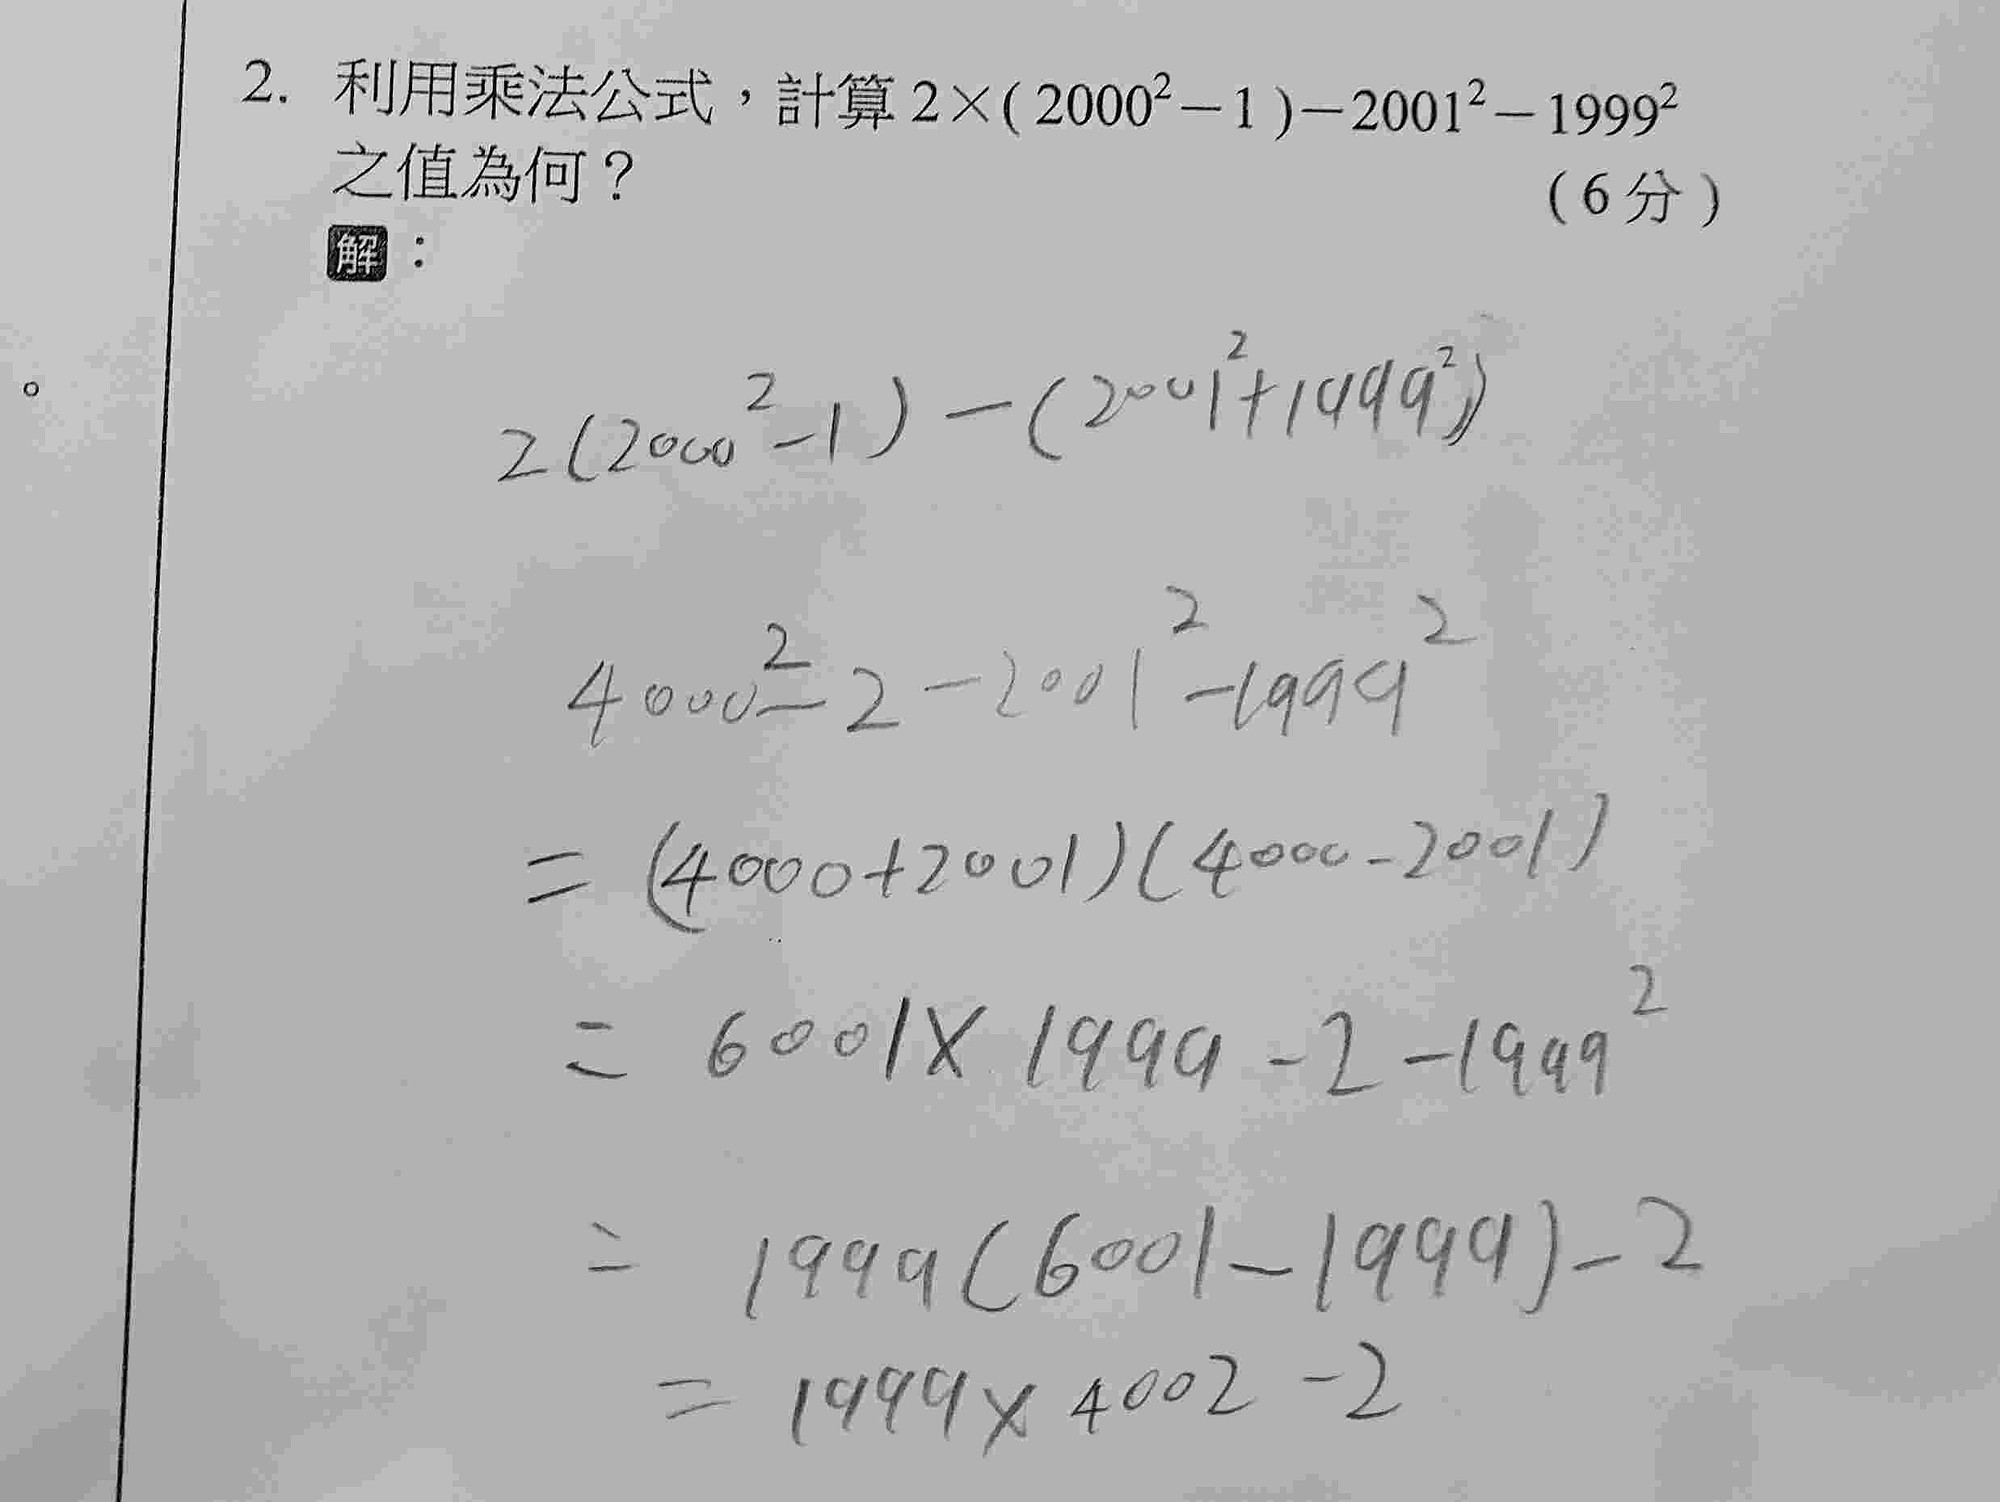 2. 利用乘法公式，計算 2×( 2000²－1 )－2001²－1999²
之值為何？
( 6 分 )
解：
2(2000²-1)-(2001²+1999²)
4000²-2-2001²-1999²
=(4000+2001)(4000-2001)
= 6001×1999-2-1999²
= 1999(6001-1999)-2
= 1999×4002-2
。